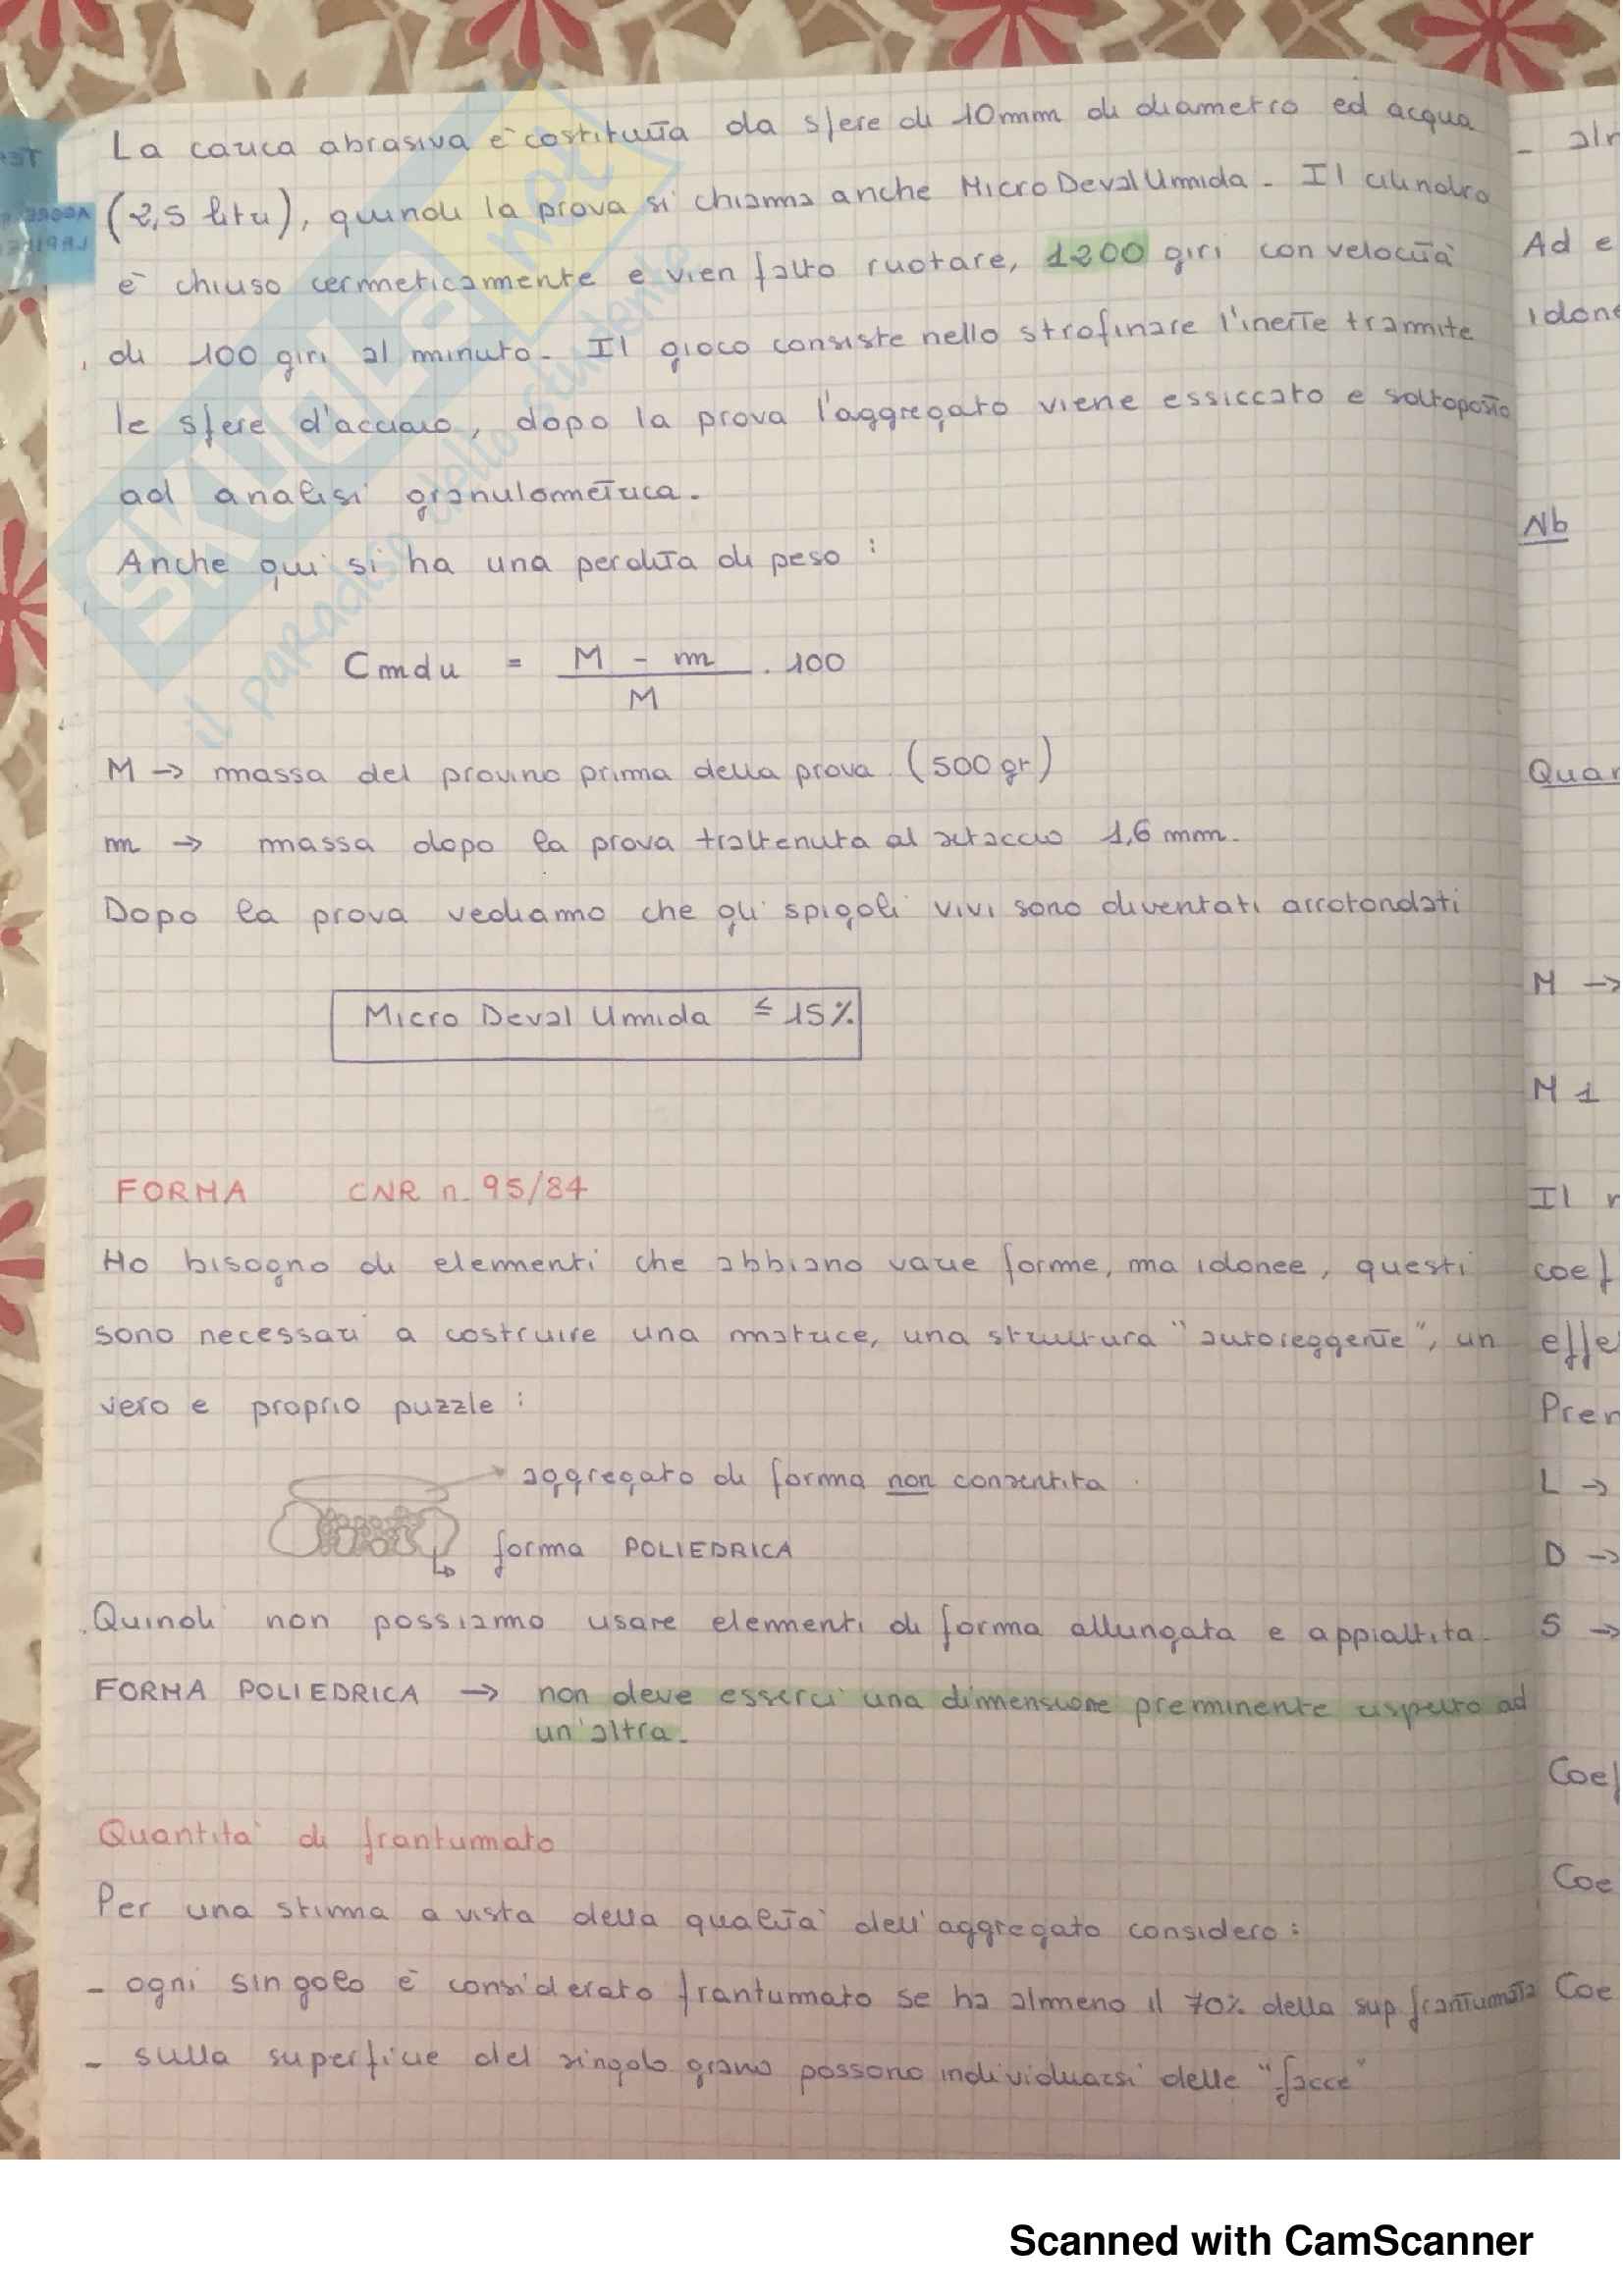 La carica abrasiva è costituita da sfere di 10mm di diametro ed acqua
(2,5 litri), quindi la prova si chiama anche Micro Deval Umida. Il cilindro
è chiuso ermeticamente e vien fatto ruotare, 1200 giri con velocità
di 100 giri al minuto. Il gioco consiste nello strofinare l'inerte tramite
le sfere d'acciaio, dopo la prova l'aggregato viene essiccato e sottoposto
ad analisi granulometrica.
Anche qui si ha una perdita di peso :
Cmdu = M - m / M . 100
M -> massa del provino prima della prova (500 gr)
m -> massa dopo la prova trattenuta al setaccio 1,6 mm.
Dopo la prova vediamo che gli spigoli vivi sono diventati arrotondati
Micro Deval Umida ≤ 15%
FORMA CNR n. 95/84
Ho bisogno di elementi che abbiano varie forme, ma idonee, questi
sono necessari a costruire una matrice, una struttura "autoreggente", un
vero e proprio puzzle :
aggregato di forma non consentita
forma POLIEDRICA
Quindi non possiamo usare elementi di forma allungata e appiattita.
FORMA POLIEDRICA -> non deve esserci una dimensione preminente rispetto ad
un'altra.
Quantita' di frantumato
Per una stima a vista della qualità dell'aggregato considero :
- ogni singolo è considerato frantumato se ha almeno il 70% della sup. frantumata
- sulla superficie del singolo grano possono individuarsi delle "facce"
Ad e
Nb
M ->
M1
Il
L ->
D ->
S ->
SKUOLA.net
il paradiso dello studente
Scanned with CamScanner